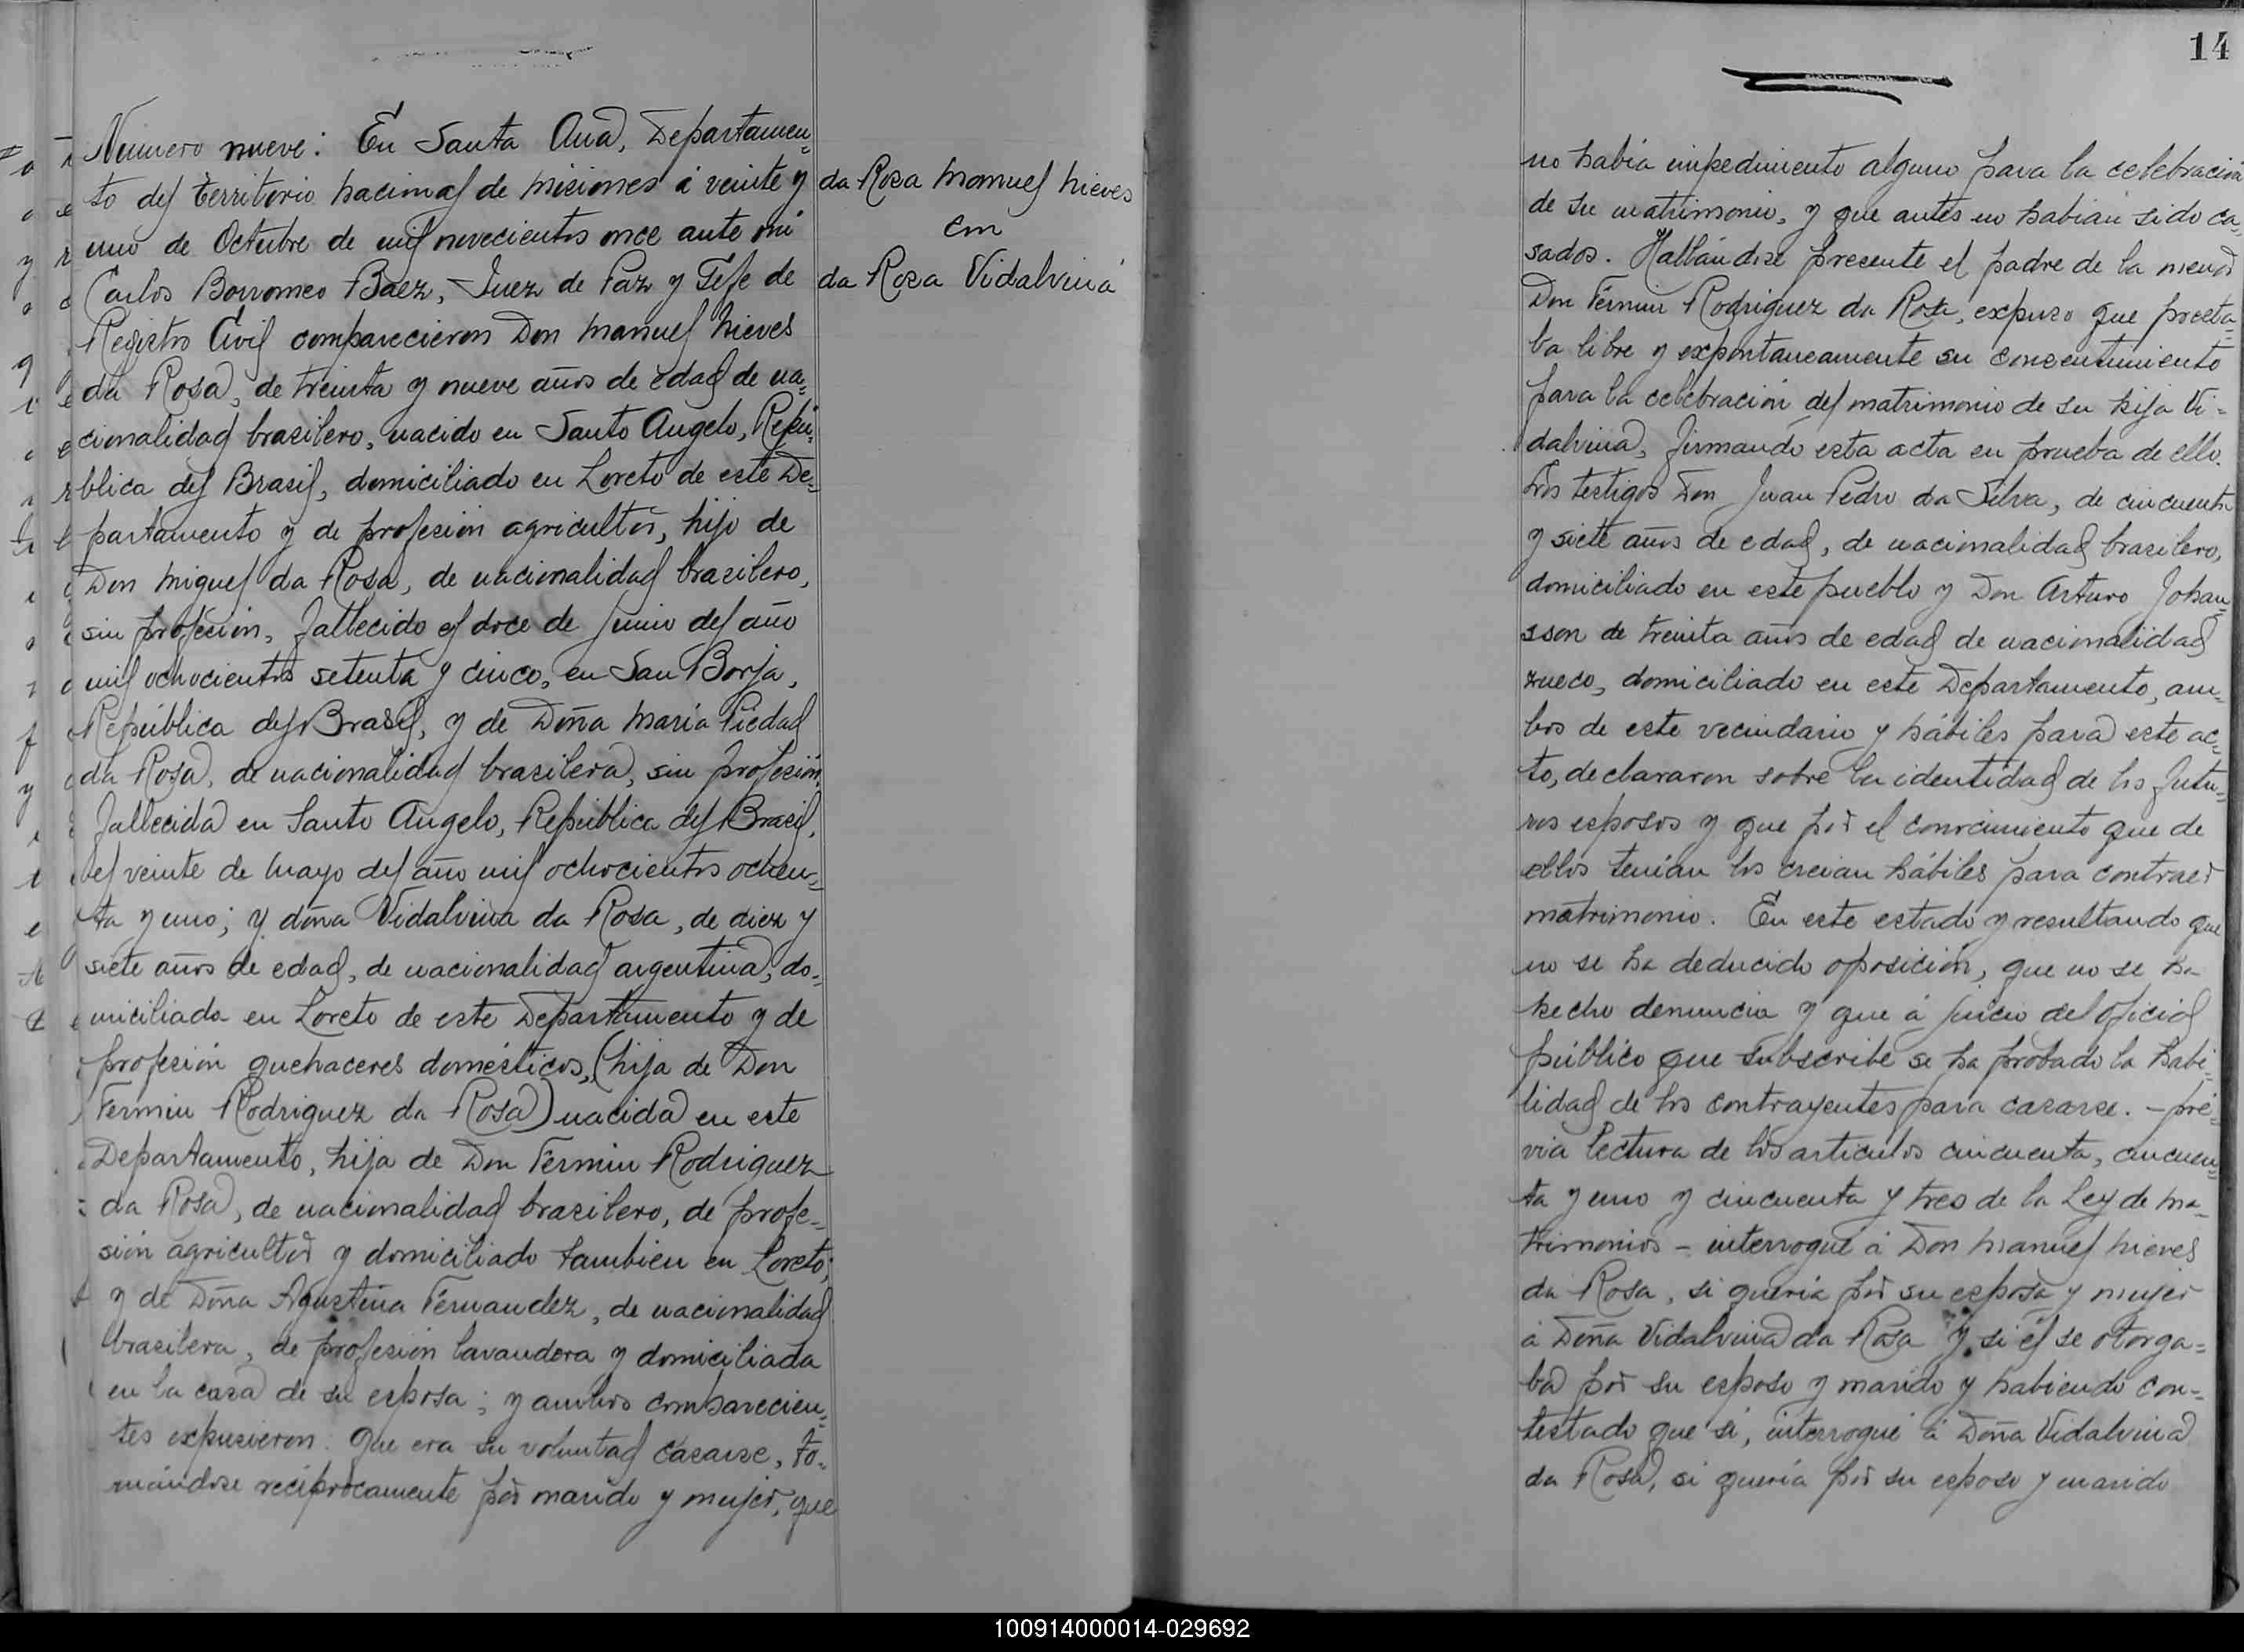 Número nueve: En Santa Ana, Departamen=
to del territorio nacional de Misiones á veinte y
uno de Octubre de mil novecientos once ante mí
Carlos Borromeo Baez, - Juez de Paz y Jefe de
Registro Civil comparecieron Don Manuel Nieves
da Rosa, de treinta y nueve años de edad de na=
cionalidad brasilero, nacido en Santo Angelo, Repú=
blica del Brasil, domiciliado en Loreto de este De=
partamento y de profesión agricultor, hijo de
Don Miguel da Rosa, de nacionalidad brasilero,
sin profesión, fallecido el doce de Junio del año
mil ochocientos setenta y cinco, en San Borja,
República del Brasil, y de Doña María Piedad
da Rosa, de nacionalidad brasilera, sin profesión,
fallecida en Santo Angelo, República del Brasil,
el veinte de Mayo del año mil ochocientos ochen=
ta y uno; y doña Vidalvina da Rosa, de diez y
siete años de edad, de nacionalidad argentina, do=
miciliada en Loreto de este Departamento y de
profesión quehaceres domésticos, (hija de Don
Fermin Rodriguez da Rosa) nacida en este
Departamento, hija de Don Fermin Rodriguez
da Rosa, de nacionalidad brasilero, de profe=
sión agricultor y domiciliado tambien en Loreto;
y de Doña Agustina Fernandez, de nacionalidad
brasilera, de profesión lavandera y domiciliada
en la casa de su esposa; y ambos comparecien=
tes expusieron: Que era su voluntad casarse, to=
mándose recíprocamente por marido y mujer, que
da Rosa Manuel Nieves
con
da Rosa Vidalvina
14
no había impedimento alguno para la celebración
de su matrimonio, y que antes no habían sido ca=
sados. Hallándose presente el padre de la menor
Don Fermin Rodriguez da Rosa, expuso que presta=
ba libre y expontaneamente su consentimiento
para la celebración del matrimonio de su hija Vi=
dalvina, firmando esta acta en prueba de ello.
Los testigos Don Juan Pedro da Silva, de cincuenta
y siete años de edad, de nacionalidad brasilero,
domiciliado en este pueblo y Don Arturo Johan=
sson de treinta años de edad de nacionalidad
zueco, domiciliado en este Departamento, am=
bos de este vecindario y hábiles para este ac=
to, declararon sobre la identidad de los futu=
ros esposos y que por el conocimiento que de
ellos tenían los creian hábiles para contraer
matrimonio. En este estado y resultando que
no se ha deducido oposición, que no se ha
hecho denuncia y que á juicio del oficial
público que subscribe se ha probado la habi=
lidad de los contrayentes para casarse. - pré=
via lectura de los artículos cincuenta, cincuen=
ta y uno y cincuenta y tres de la Ley de Ma=
trimonios - interrogué á Don Manuel Nieves
da Rosa, si quería por su esposa y mujer
á Doña Vidalvina da Rosa y si él se otorga=
ba por su esposo y marido y habiendo con=
testado que sí, interrogué á Doña Vidalvina
da Rosa, si quería por su esposo y marido
100914000014-029692